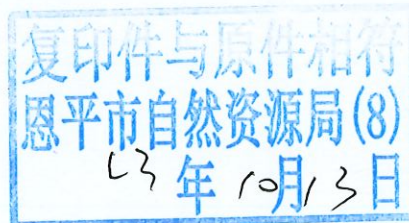 复印件与原件相符
恩平市自然资源局(8)
23年10月13日